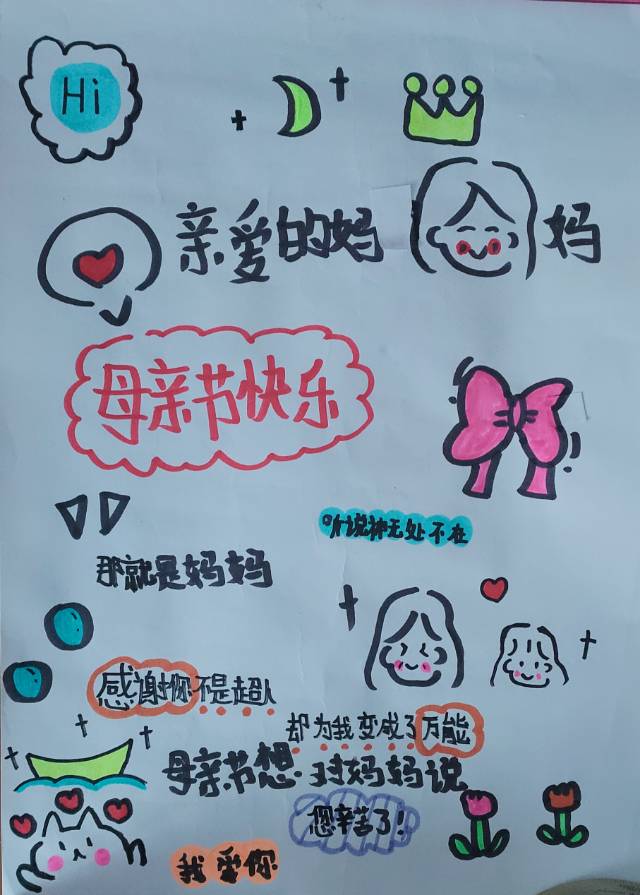 Hi
亲爱的妈妈
母亲节快乐
听说神无处不在
那就是妈妈
感谢你不是超人
却为我变成了万能
母亲节想对妈妈说
您辛苦了!
我爱你